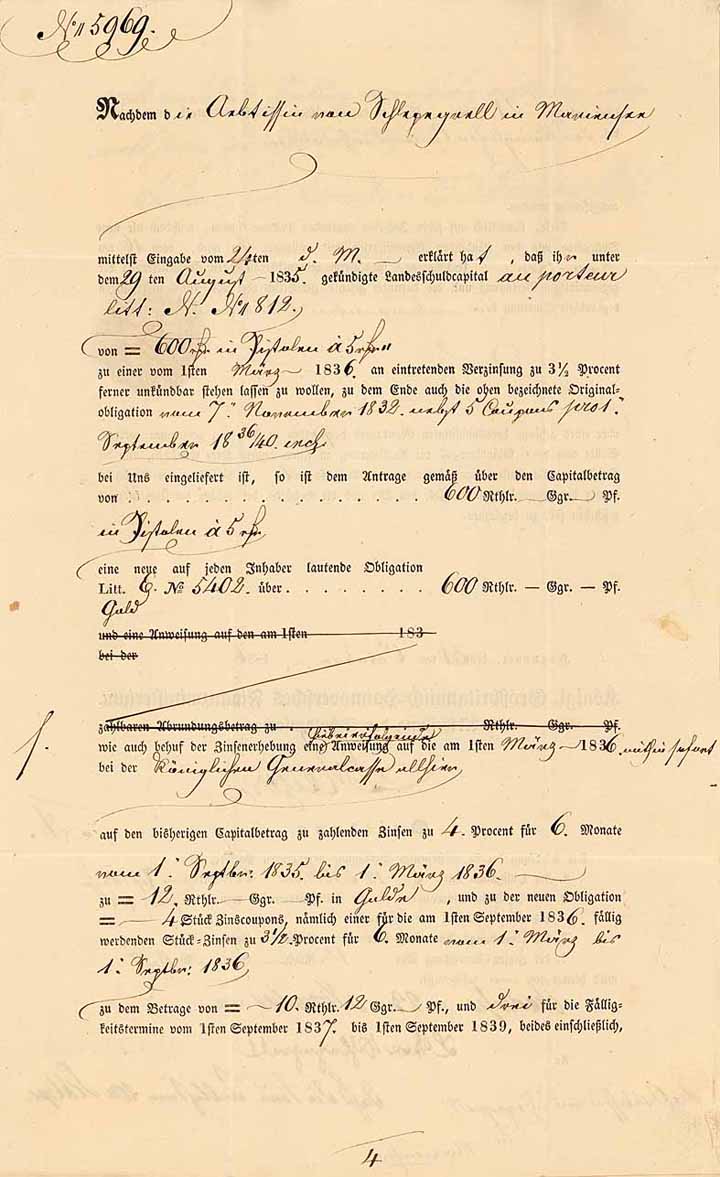 No. 5969.
Nachdem die Aebtissin von Schlepegrell in Mariensee
mittelst Eingabe vom 24sten d. M. erklärt hat, daß ihr unter
dem 29 ten August 1835. gekündigte Landesschuldcapital au porteur
litt: N. No. 812.
von = 600 rh. in Pistolen à 5 rh.
zu einer vom 1sten März 1836. an eintretenden Verzinsung zu 3½ Procent
ferner unkündbar stehen lassen zu wollen, zu dem Ende auch die oben bezeichnete Original-
obligation vom 7. November 1832. nebst 5 Coupons pro 1.
September 1836/40. incl.
bei Uns eingeliefert ist, so ist dem Antrage gemäß über den Capitalbetrag
von . . . . . . . . . . . . . . . . 600 Rthlr. — Ggr. — Pf.
in Pistolen à 5 rh.
eine neue auf jeden Inhaber lautende Obligation
Litt. E. No 5402. über . . . . . . . . 600 Rthlr. — Ggr. — Pf.
Gold
und eine Anweisung auf den am 1sten 183
bei der
zahlbaren Abrundungsbetrag zu . Rthlr. Ggr. Pf.
hiebei erfolgende
wie auch behuf der Zinsenerhebung eine Anweisung auf die am 1sten März 1836. mithin sofort
bei der Königlichen Generalcasse allhier
auf den bisherigen Capitalbetrag zu zahlenden Zinsen zu 4. Procent für 6. Monate
vom 1. Septbr: 1835. bis 1. März 1836.
zu = 12. Rthlr. — Ggr. — Pf. in Golde, und zu der neuen Obligation
= 4 Stück Zinscoupons, nämlich einer für die am 1sten September 1836. fällig
werdenden Stück-Zinsen zu 3½. Procent für 6. Monate vom 1. März bis
1. Septbr: 1836,
zu dem Betrage von = 10. Rthlr. 12 Ggr. — Pf., und drei für die Fällig-
keitstermine vom 1sten September 1837. bis 1sten September 1839, beides einschließlich,
4